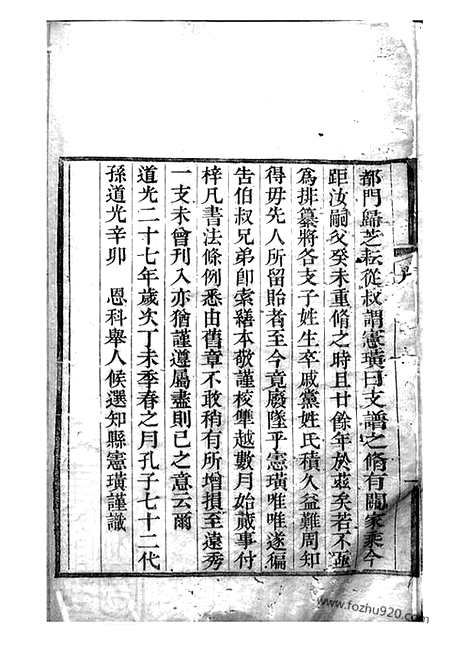 都門歸芝耘從叔謂憲璜曰支譜之脩有關家乘今
距汝嗣父癸未重脩之時且廿餘年於茲矣若不亟
為排纂將各支子姓生卒戚黨姓氏積久益難周知
得毋先人所留貽者至今竟廢墜乎憲璜唯唯遂徧
告伯叔兄弟卽索繕本敬謹校讐越數月始蕆事付
梓凡書法條例悉由舊章不敢稍有所增損至遠秀
一支未曾刊入亦猶謹遵屬盡則已之意云爾
道光二十七年歲次丁未季春之月孔子七十二代
孫道光辛卯 恩科舉人候選知縣憲璜謹識
www.fozhu920.com